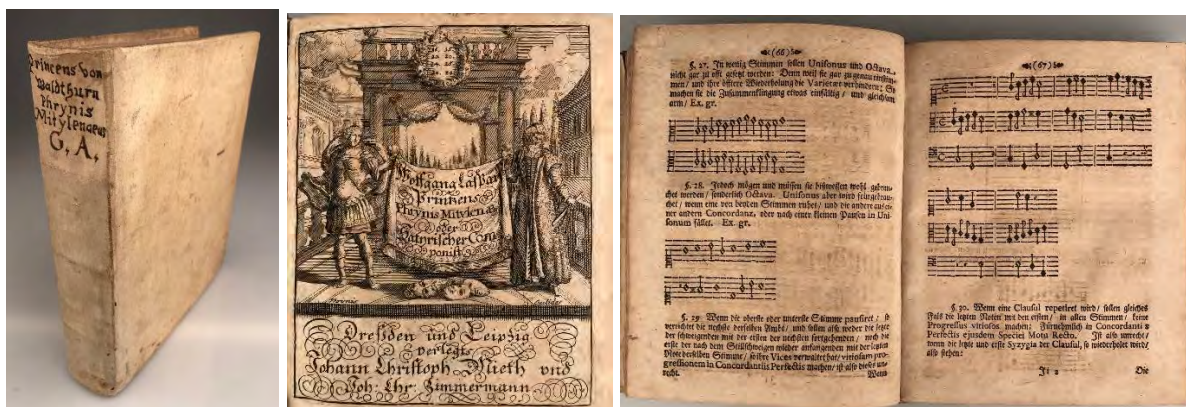 Princens von
Waldthurn
Phrynis
Mitylenaeus
G, A,
Wolffgang Caspar
Printzens
Phrynis Mitylen⁹
oder
Satyrischer Com
ponist
Phrynis
Dreßden und Leipzig
verlegts
Johann Christoph Mieth und
Joh: Chr: Zimmermann
(66)
§. 27. In wenig Stimmen sollen Unisonus und Octava
nicht gar zu offt gesetzt werden: Denn weil sie gar zu genau einstim-
men/ und ihre öftere Wiederholung die Varietæt verhindern; So
machen sie die Zusammenstimmung etwas einfältig/ und gleichsam
arm/ Ex. gr.
§. 28. Jedoch mögen und müssen sie bißweilen wohl gebrau-
chet werden/ sonderlich Octava. Unisonus aber wird fein gebrau-
chet/ wenn eine von beyden Stimmen ruhet/ und die andere aus ei-
ner andern Concordanz, oder nach einer kleinen Pausen in Uni-
sonum fället. Ex. gr.
§. 29 Wenn die oberste oder unterste Stimme pausiret/ so
verrichtet die nechste derselben Ambt/ und sollen also weder die letzte
der schweigenden mit der ersten der nechsten fortgehenden/ noch die
erste der nach dem Stillschweigen wieder anfangenden mit der letzten
Note derselben Stimme/ so ihre Vices verwaltet hat/ vitiosum pro-
gressionem in Concordantiis Perfectis machen/ ist also dieses un-
recht.
Wenn
(67)
§. 30. Wenn eine Clausul repetiret wird/ sollen gleiches
Falls die letzten Noten mit den ersten/ in allen Stimmen/ keine
Progressus vitiosos machen: Fürnehmlich in Concordantiis
Perfectis ejusdem Speciei Motu Recto. Ist also unrecht/
wenn die letzte und erste Syzygia der Clausul, so wiederholet wird/
also stehen:
Ji 2
Die